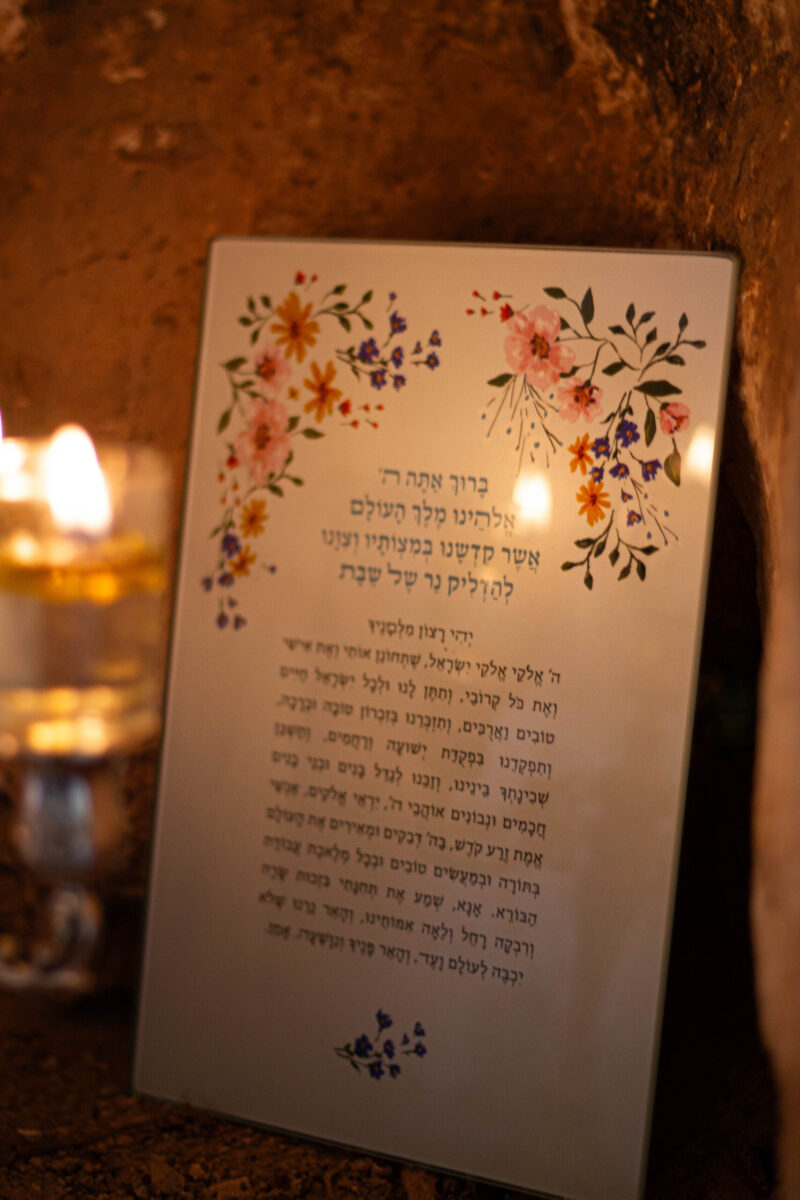 בָּרוּךְ אַתָּה ה'
אֱלֹהֵינוּ מֶלֶךְ הָעוֹלָם
אֲשֶׁר קִדְּשָׁנוּ בְּמִצְוֹתָיו וְצִוָּנוּ
לְהַדְלִיק נֵר שֶׁל שַׁבָּת
יְהִי רָצוֹן מִלְּפָנֶיךָ
ה' אֱלֹקַי אֱלֹקֵי יִשְׂרָאֵל, שֶׁתְּחוֹנֵן אוֹתִי וְאֶת אִישִׁי
וְאֶת כֹּל קְרוֹבַי, וְתִתֵּן לָנוּ וּלְכָל יִשְׂרָאֵל חַיִּים
טוֹבִים וַאֲרֻכִּים, וְתִזְכְּרֵנוּ בְּזִכְרוֹן טוֹבָה וּבְרָכָה,
וְתִפְקְדֵנוּ בִּפְקֻדַּת יְשׁוּעָה וְרַחֲמִים, וְתַשְׁכֵּן
שְׁכִינָתְךָ בֵּינֵינוּ, וְזַכֵּנוּ לְגַדֵּל בָּנִים וּבְנֵי בָנִים
חֲכָמִים וּנְבוֹנִים אוֹהֲבֵי ה', יִרְאֵי אֱלֹקִים, אַנְשֵׁי
אֱמֶת זֶרַע קֹדֶשׁ, בַּה' דְּבֵקִים וּמְאִירִים אֶת הָעוֹלָם
בְּתוֹרָה וּבְמַעֲשִׂים טוֹבִים וּבְכָל מְלֶאכֶת עֲבוֹדַת
הַבּוֹרֵא. אָנָּא, שְׁמַע אֶת תְּחִנָּתִי בִּזְכוּת שָׂרָה
וְרִבְקָה רָחֵל וְלֵאָה אִמּוֹתֵינוּ, וְהָאֵר נֵרֵנוּ שֶׁלֹּא
יִכְבֶּה לְעוֹלָם וָעֶד, וְהָאֵר פָּנֶיךָ וְנִוָּשֵׁעָה. אָמֵן.